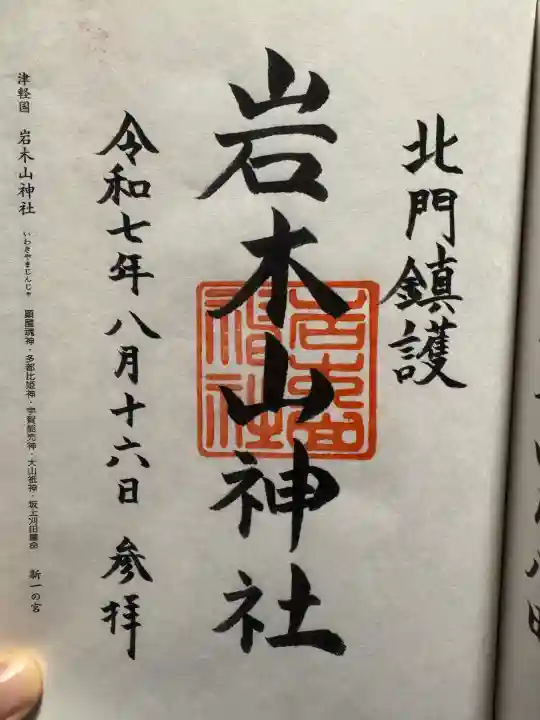 北門鎮護
岩木山神社
令和七年八月十六日 参拝
津軽国 岩木山神社 いわきやまじんじゃ 顕國魂神・多都比姫神・宇賀能売神・大山祇神・坂上刈田麿命 新一の宮